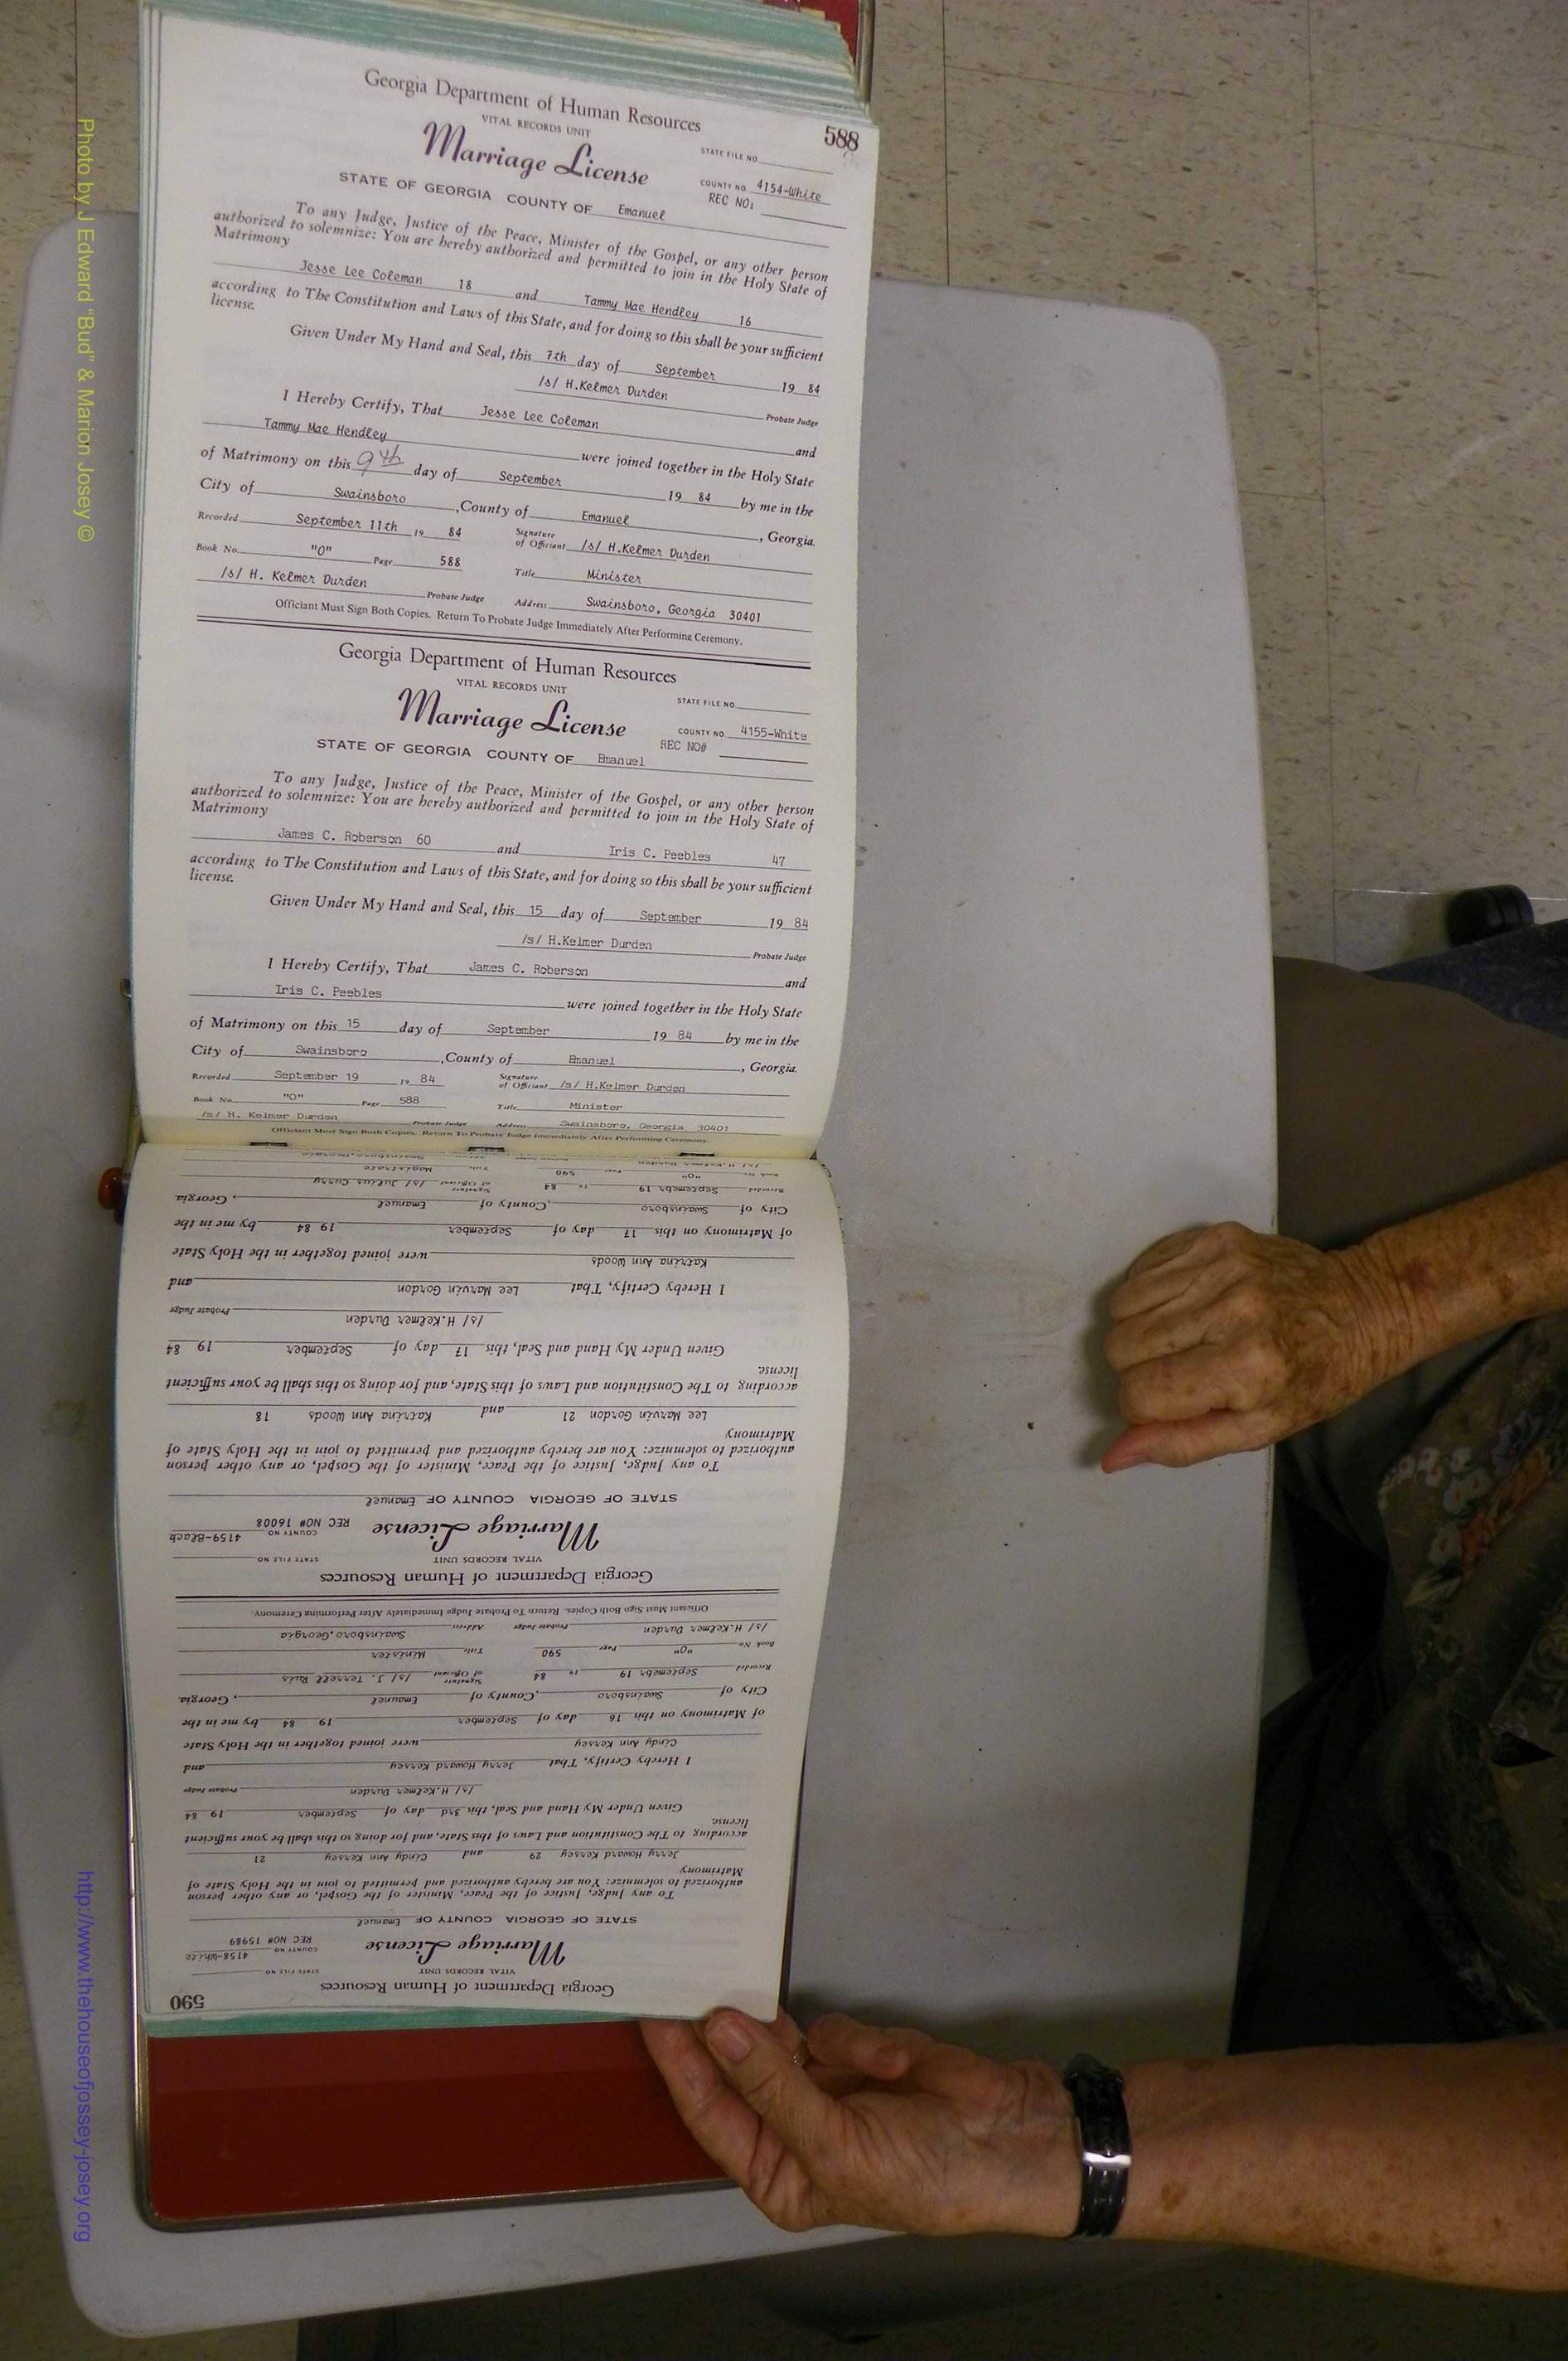 588
Georgia Department of Human Resources
VITAL RECORDS UNIT
STATE FILE NO.
Marriage License
COUNTY NO. 4154-White
REC NO:
STATE OF GEORGIA COUNTY OF Emanuel
To any Judge, Justice of the Peace, Minister of the Gospel, or any other person
authorized to solemnize: You are hereby authorized and permitted to join in the Holy State of
Matrimony
Jesse Lee Coleman 18 and Tammy Mae Hendley 16
according to The Constitution and Laws of this State, and for doing so this shall be your sufficient
license.
Given Under My Hand and Seal, this 7th day of September 19 84
/s/ H.Kelmer Durden
Probate Judge
I Hereby Certify, That Jesse Lee Coleman and
Tammy Mae Hendley were joined together in the Holy State
of Matrimony on this 9th day of September 19 84 by me in the
City of Swainsboro, County of Emanuel, Georgia.
Recorded September 11th 19 84 Signature of Officiant /s/ H.Kelmer Durden
Book No. "O" Page 588 Title Minister
/s/ H. Kelmer Durden Probate Judge Address Swainsboro, Georgia 30401
Officiant Must Sign Both Copies. Return To Probate Judge Immediately After Performing Ceremony.
Georgia Department of Human Resources
VITAL RECORDS UNIT
STATE FILE NO.
Marriage License
COUNTY NO. 4155-White
REC NO#
STATE OF GEORGIA COUNTY OF Emanuel
To any Judge, Justice of the Peace, Minister of the Gospel, or any other person
authorized to solemnize: You are hereby authorized and permitted to join in the Holy State of
Matrimony
James C. Roberson 60 and Iris C. Peebles 47
according to The Constitution and Laws of this State, and for doing so this shall be your sufficient
license.
Given Under My Hand and Seal, this 15 day of September 19 84
/s/ H.Kelmer Durden
Probate Judge
I Hereby Certify, That James C. Roberson and
Iris C. Peebles were joined together in the Holy State
of Matrimony on this 15 day of September 19 84 by me in the
City of Swainsboro, County of Emanuel, Georgia.
Recorded September 19 19 84 Signature of Officiant /s/ H.Kelmer Durden
Book No. "O" Page 588 Title Minister
/s/ H. Kelmer Durden Probate Judge Address Swainsboro, Georgia 30401
Officiant Must Sign Both Copies. Return To Probate Judge Immediately After Performing Ceremony.
590
Georgia Department of Human Resources
VITAL RECORDS UNIT
STATE FILE NO.
Marriage License
COUNTY NO. 4158-White
REC NO# 15989
STATE OF GEORGIA COUNTY OF Emanuel
To any Judge, Justice of the Peace, Minister of the Gospel, or any other person
authorized to solemnize: You are hereby authorized and permitted to join in the Holy State of
Matrimony
Jerry Howard Kersey 29 and Cindy Ann Kersey 21
according to The Constitution and Laws of this State, and for doing so this shall be your sufficient
license.
Given Under My Hand and Seal, this 3rd day of September 19 84
/s/ H.Kelmer Durden
Probate Judge
I Hereby Certify, That Jerry Howard Kersey and
Cindy Ann Kersey were joined together in the Holy State
of Matrimony on this 16 day of September 19 84 by me in the
City of Swainsboro, County of Emanuel, Georgia.
Recorded Septemebr 19 19 84 Signature of Officiant /s/ J. Terrell Ruis
Book No. "O" Page 590 Title Minister
/s/ H.Kelmer Durden Probate Judge Address Swainsboro,Georgia
Officiant Must Sign Both Copies. Return To Probate Judge Immediately After Performing Ceremony.
Georgia Department of Human Resources
VITAL RECORDS UNIT
STATE FILE NO.
Marriage License
COUNTY NO. 4159-Black
REC NO# 16008
STATE OF GEORGIA COUNTY OF Emanuel
To any Judge, Justice of the Peace, Minister of the Gospel, or any other person
authorized to solemnize: You are hereby authorized and permitted to join in the Holy State of
Matrimony
Lee Marvin Gordon 21 and Katrina Ann Woods 18
according to The Constitution and Laws of this State, and for doing so this shall be your sufficient
license.
Given Under My Hand and Seal, this 17 day of September 19 84
/s/ H.Kelmer Durden
Probate Judge
I Hereby Certify, That Lee Marvin Gordon and
Katrina Ann Woods were joined together in the Holy State
of Matrimony on this 17 day of September 19 84 by me in the
City of Swainsboro, County of Emanuel, Georgia.
Recorded Septemebr 19 19 84 Signature of Officiant /s/ Julius Curry
Book No. "O" Page 590 Title Magistrate
/s/ H.Kelmer Durden Swainsboro,Georgia
Photo by J Edward "Bud" & Marion Josey ©
http://www.thehouseofjossey-josey.org